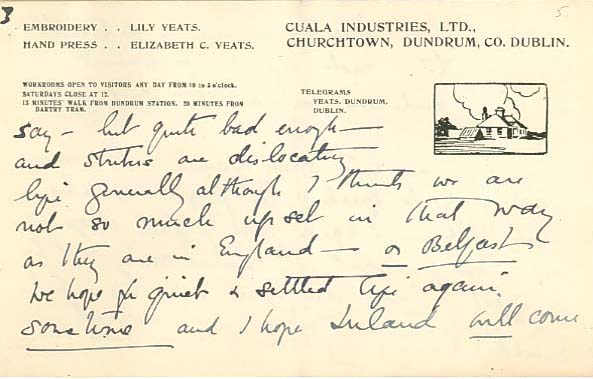 3
5.
EMBROIDERY . . LILY YEATS.
HAND PRESS . . ELIZABETH C. YEATS.
CUALA INDUSTRIES, LTD.,
CHURCHTOWN, DUNDRUM, CO. DUBLIN.
WORKROOMS OPEN TO VISITORS ANY DAY FROM 10 to 5 o'clock.
SATURDAYS CLOSE AT 12.
15 MINUTES' WALK FROM DUNDRUM STATION. 20 MINUTES FROM
DARTRY TRAM.
TELEGRAMS
YEATS, DUNDRUM,
DUBLIN.
say — but quite bad enough —
and strikes are dislocating
life generally although I think we are
not so much upset in that way
as they are in England — or Belfast
We hope for quiet & settled life again
sometime and I hope Ireland will come